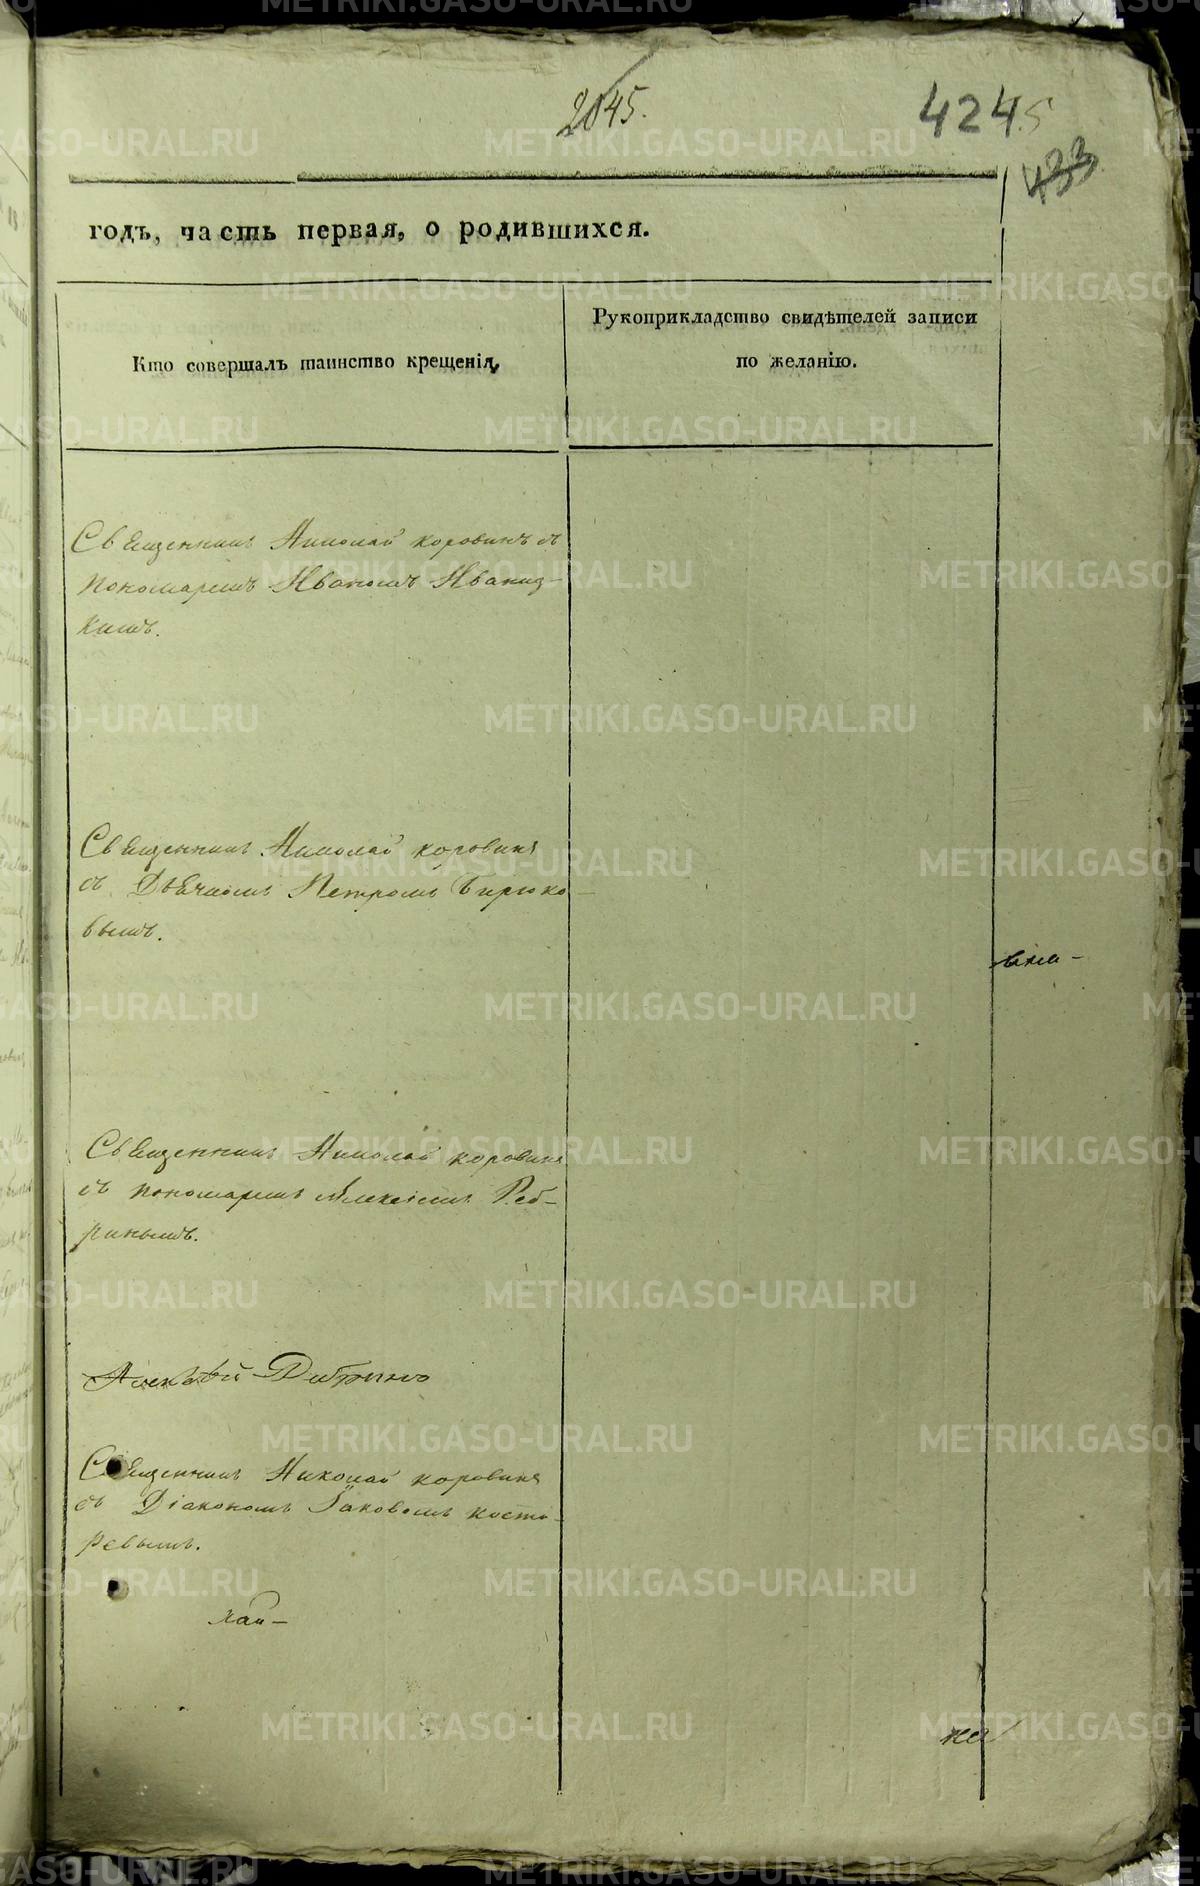 2045.
424.5
433
годъ, часть первая, о родившихся.
Кто совершалъ таинство крещенія,
Рукоприкладство свидѣтелей записи
по желанію.
Священникъ Николай коровинъ съ
пономаремъ Иваномъ Иваниц-
кимъ.
Священникъ Николай коровинъ
съ Дьячкомъ Петромъ Бирюко-
вымъ.
Священникъ Николай коровинъ
съ пономаремъ Алексіемъ Реб-
ринымъ.
Священникъ Николай коровинъ
съ Діакономъ Іаковомъ косто-
ревымъ.
METRIKI.GASO-URAL.RU